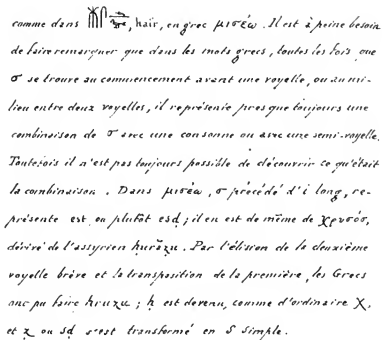 comme dans , haïr, en grec μισέω. Il est à peine besoin
de faire remarquer que dans les mots grecs, toutes les fois que
σ se trouve au commencement avant une voyelle, ou au mi-
lieu entre deux voyelles, il représente presque toujours une
combinaison de σ avec une consonne ou avec une semi-voyelle.
Toutefois il n'est pas toujours possible de découvrir ce qu'était
la combinaison. Dans μισέω, σ précédé d'i long, re-
présente est ou plutôt esḍ; il en est de même de χρυσός,
dérivé de l'assyrien ḫurāẓu. Par l'élision de la deuxième
voyelle brève et la transposition de la première, les Grecs
ont pu faire ḥruẓu; ḥ est devenu, comme d'ordinaire χ,
et ẓ ou sḍ s'est transformé en S simple.